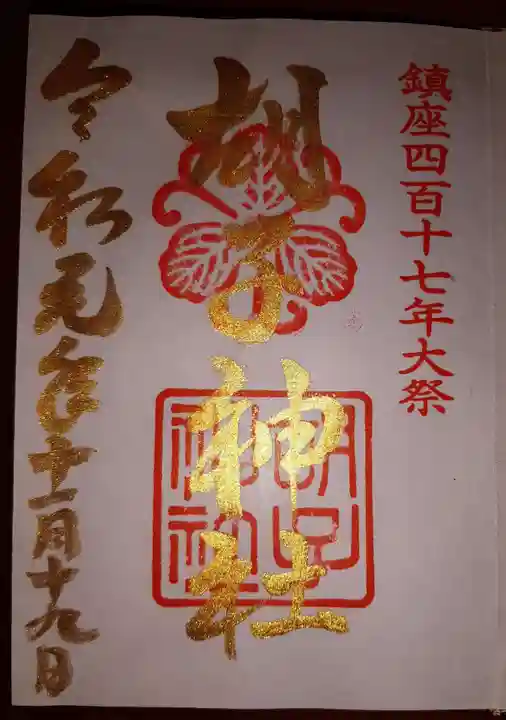 鎮座四百十七年大祭
胡子神社
胡子神社
令和元年十一月十九日